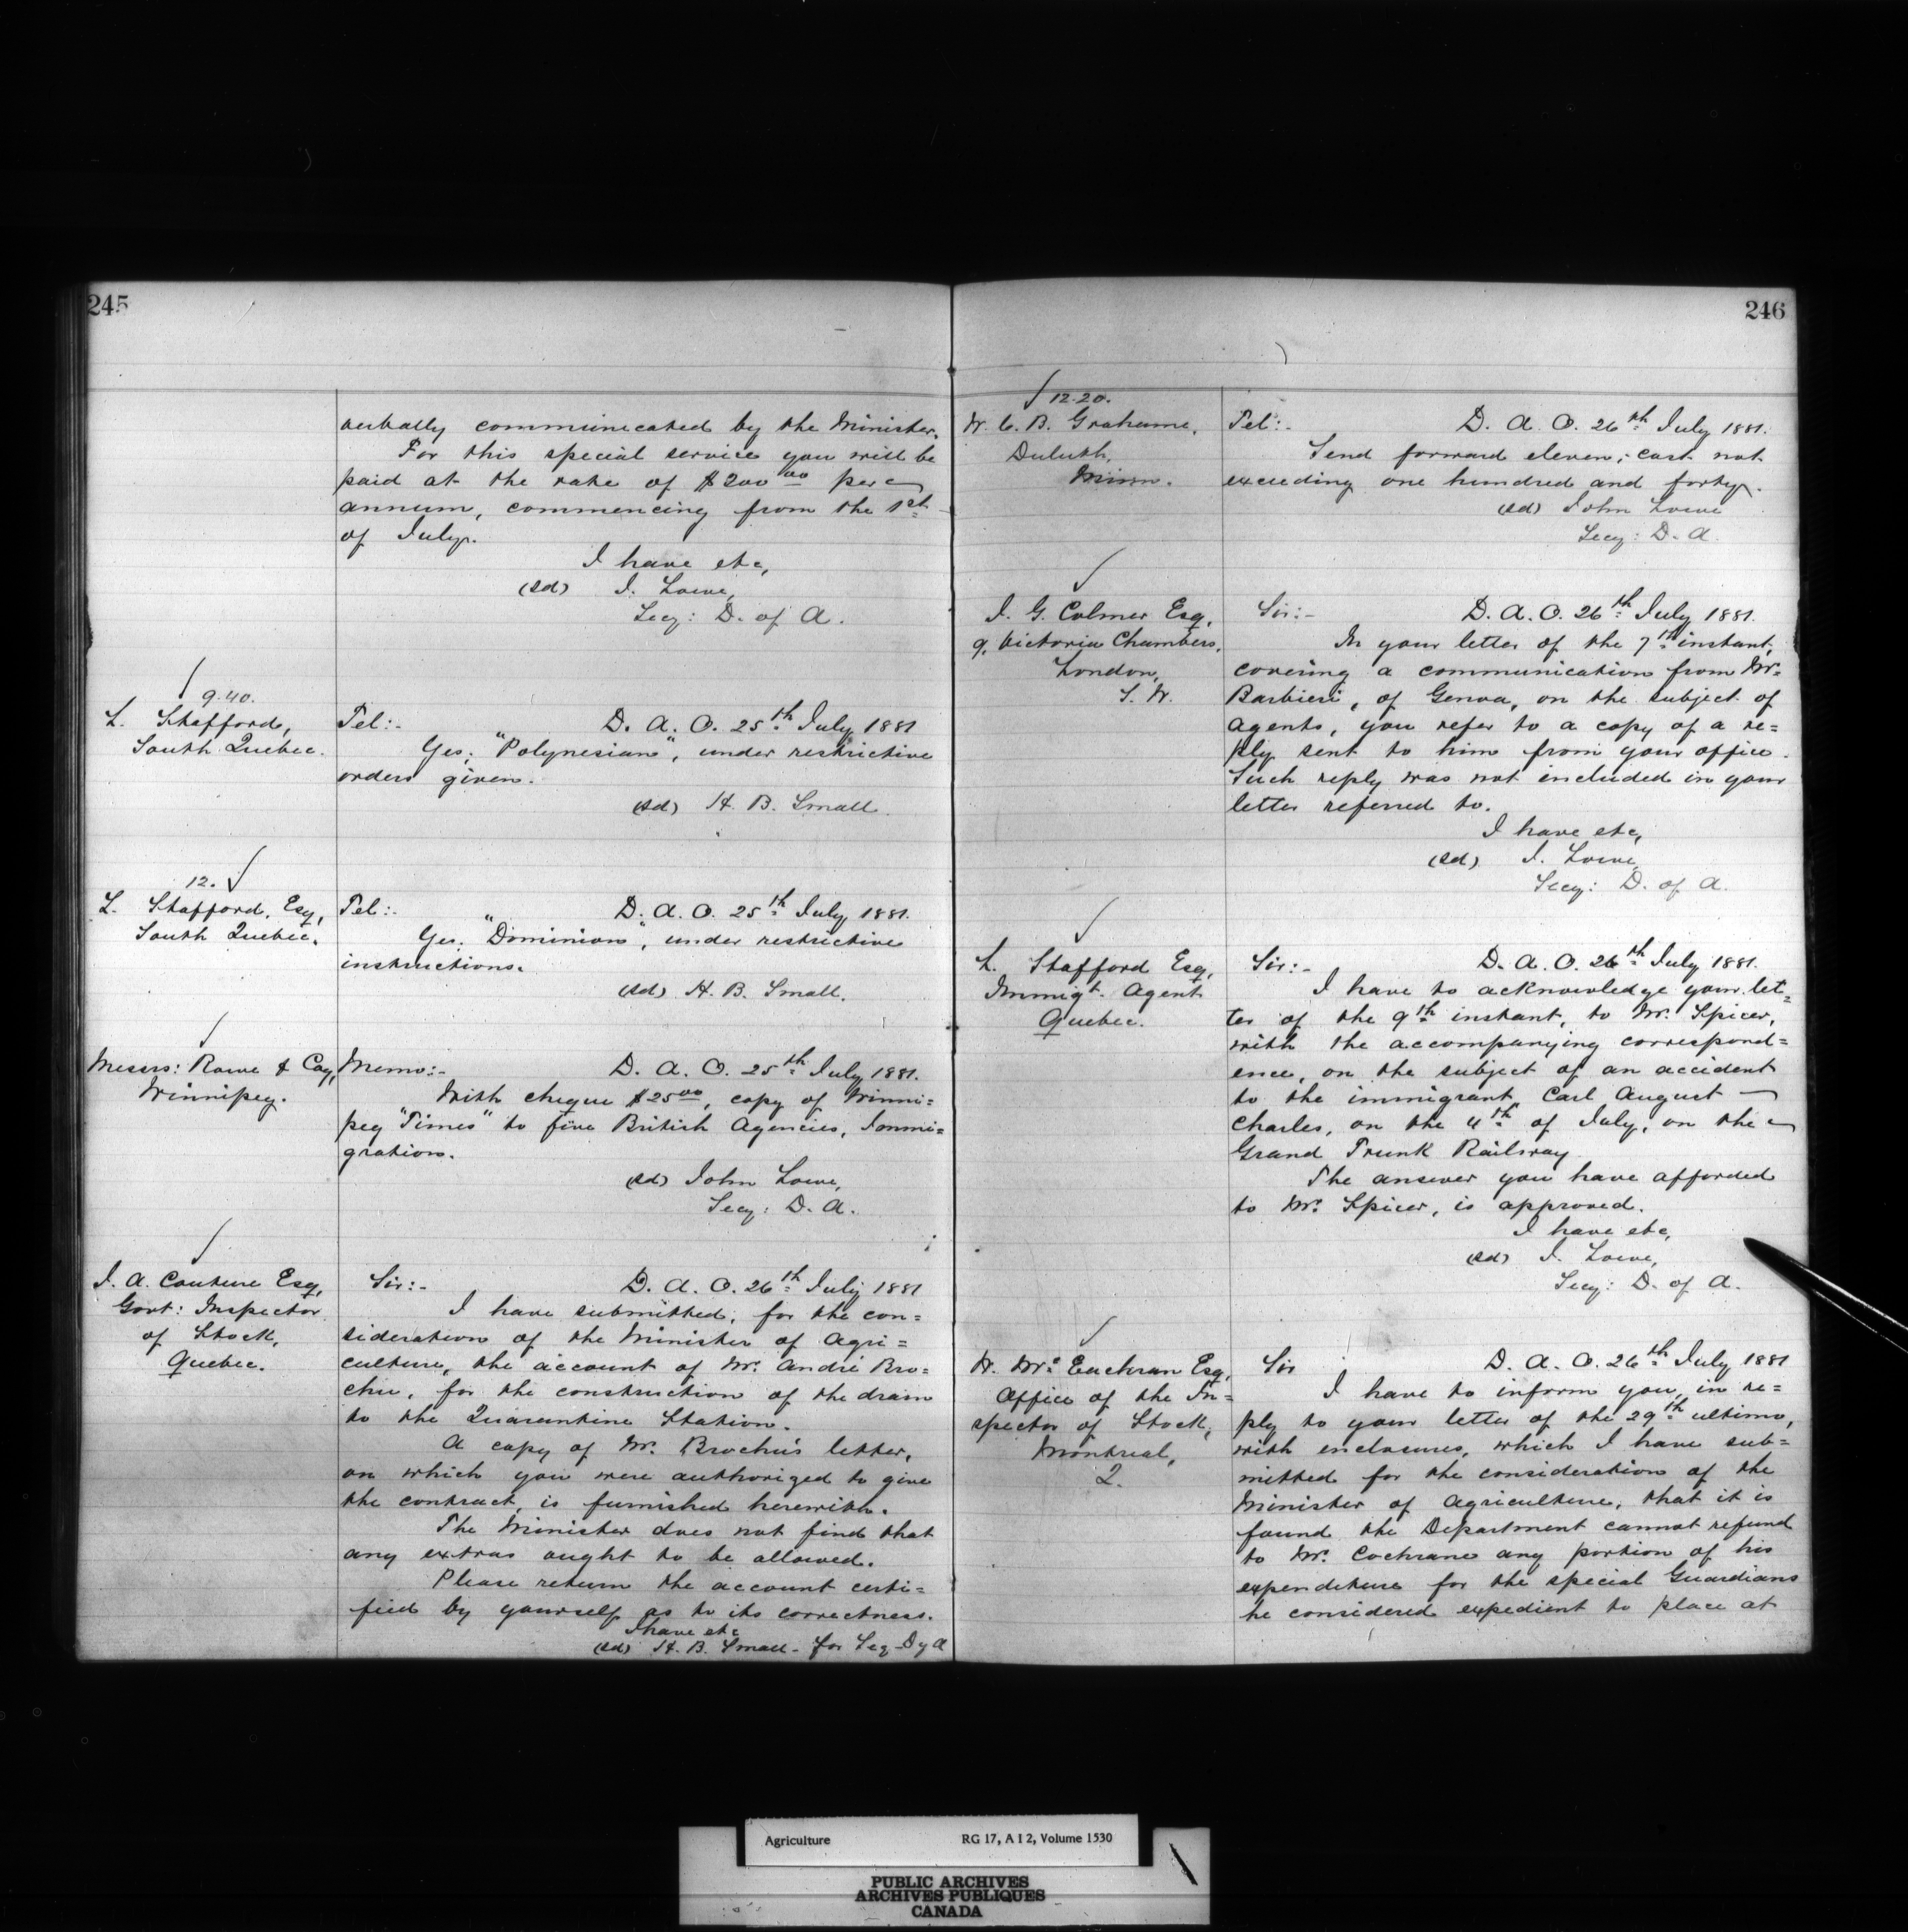 245
verbally communicated by the Minister.
For this special service you will be
paid at the rate of $200 00 per
annum, commencing from the 1st
of July.
I have etc,
(sd) J. Lowe,
Secy: D. of A.
9.40.
L. Stafford,
South Quebec.
Tel:- D. A. O. 25th July 1881
Yes; "Polynesian", under restrictive
orders given.
(sd) H. B. Small
12.
L. Stafford, Esq,
South Quebec.
Tel:- D. A. O. 25th July 1881.
Yes; "Dominion", under restrictive
instructions.
(sd) H. B. Small.
Messrs: Rowe & Coy,
Winnipeg.
Memo:- D. A. O. 25th July 1881.
With cheque $25 00, copy of Winni=
peg "Times" to five British Agencies, Immi=
gration.
(sd) John Lowe,
Secy: D. A.
J. A. Couture Esq,
Govt: Inspector
of Stock,
Quebec.
Sir:- D. A. O. 26th July 1881
I have submitted, for the con=
sideration of the Minister of Agri=
culture, the account of Mr. André Bro=
chu, for the construction of the drain
to the Quarantine Station.
A copy of Mr. Brochu's letter,
on which you were authorized to give
the contract, is furnished herewith.
The Minister does not find that
any extras ought to be allowed.
Please return the account certi=
fied by yourself as to its correctness.
I have etc
(sd) H. B. Small - for Secy D of A
246
12.20.
W. C. B. Grahame,
Duluth,
Minn.
Tel:- D. A. O. 26th July 1881.
Send forward eleven; cost not
exceeding one hundred and forty.
(sd) John Lowe
Secy: D. A.
J. G. Colmer Esq,
9, Victoria Chambers,
London,
S. W.
Sir:- D. A. O. 26th July 1881.
In your letter of the 7th instant,
covering a communication from Mr.
Barbieri, of Genoa, on the subject of
agents, you refer to a copy of a re=
ply sent to him from your office.
Such reply was not included in your
letter referred to.
I have etc,
(sd) J. Lowe,
Secy: D. of A.
L. Stafford Esq,
Immigt. Agent
Quebec.
Sir:- D. A. O. 26th July 1881.
I have to acknowledge your let=
ter of the 9th instant, to Mr. Spicer,
with the accompanying correspond=
ence, on the subject of an accident
to the immigrant, Carl August
Charles, on the 4th of July, on the
Grand Trunk Railway
The answer you have afforded
to Mr. Spicer, is approved.
I have etc,
(sd) J. Lowe,
Secy: D. of A.
D. Mc Eachran Esq,
Office of the In=
spector of Stock,
Montreal,
2.
Sir D. A. O. 26th July 1881
I have to inform you, in re=
ply to your letter of the 29th ultimo,
with enclosures, which I have sub=
mitted for the consideration of the
Minister of Agriculture, that it is
found the Department cannot refund
to Mr. Cochrane any portion of his
expenditure for the special Guardians
he considered expedient to place at
Agriculture RG 17, A I 2, Volume 1530
PUBLIC ARCHIVES
ARCHIVES PUBLIQUES
CANADA